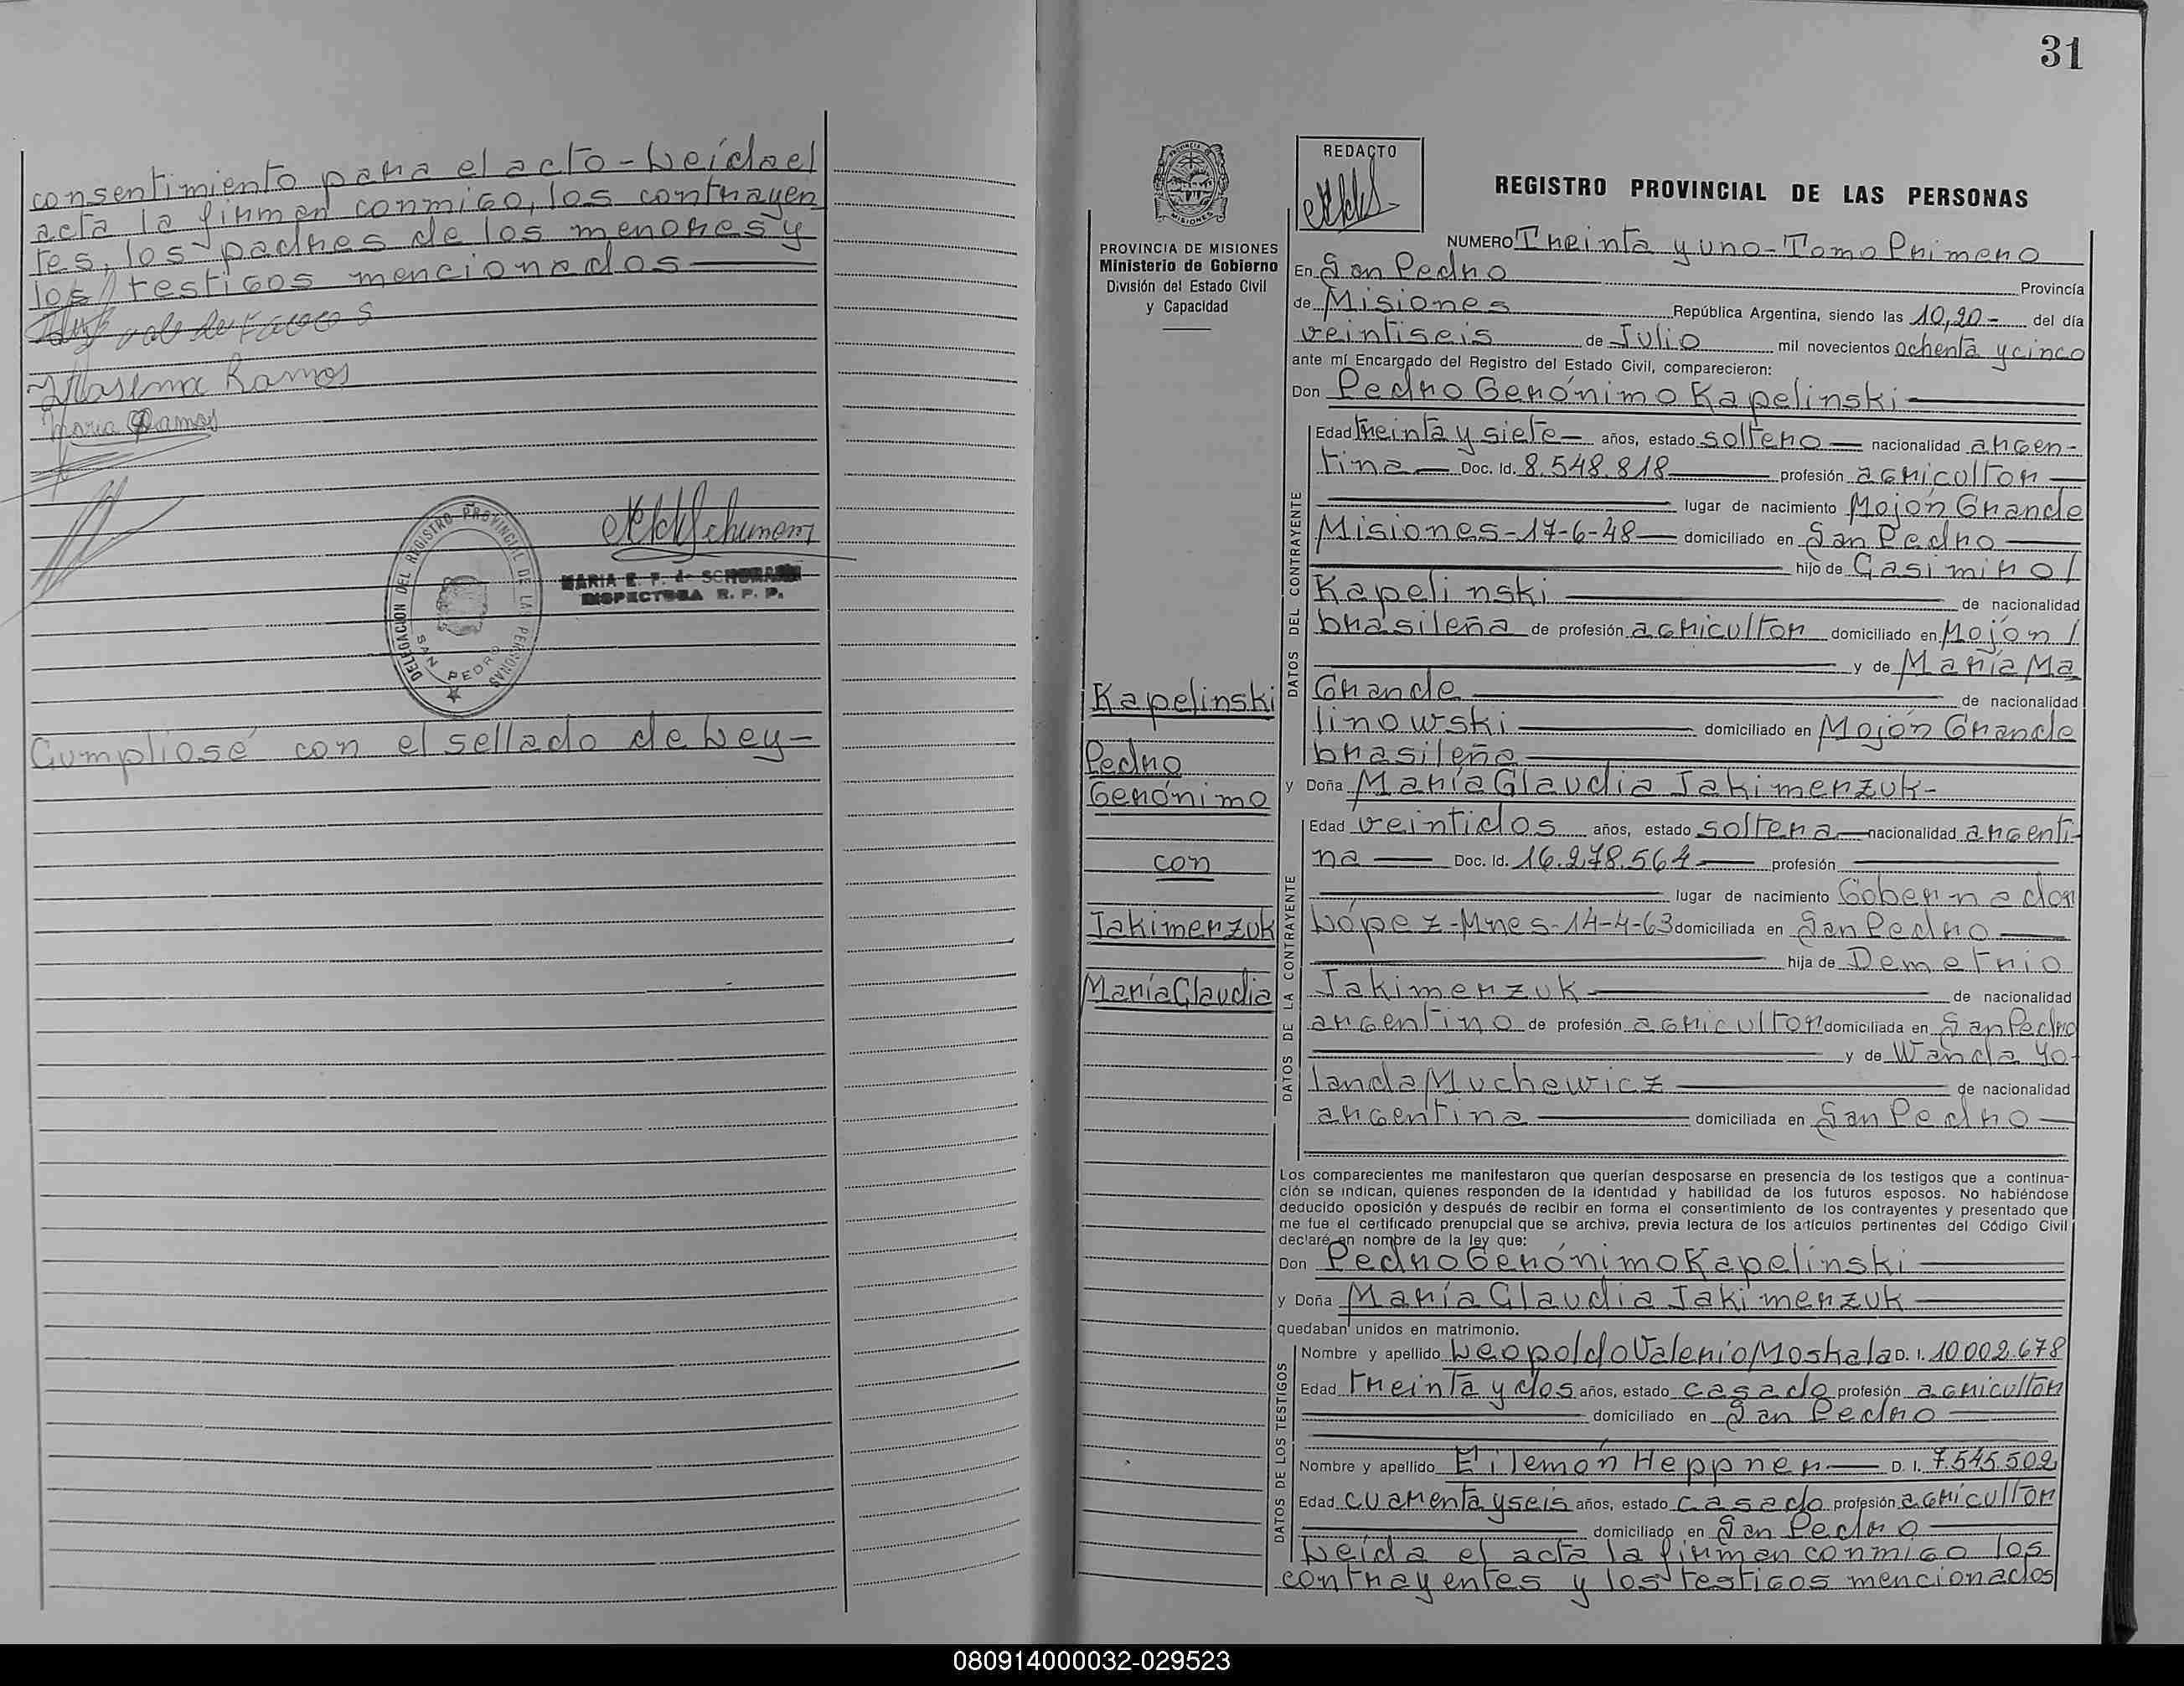 consentimiento para el acto - Leída el
acta la firman conmigo, los contrayen
tes, los padres de los menores y
los testigos mencionados
Ramos
Maria Ramos
DELEGACION DEL REGISTRO PROVINCIAL DE LAS PERSONAS
SAN PEDRO
MARIA E. F. de SCHUMANN
INSPECTORA R. P. P.
Cumpliose con el sellado de Ley-
31
PROVINCIA DE MISIONES
Ministerio de Gobierno
División del Estado Civil
y Capacidad
REDACTO
REGISTRO PROVINCIAL DE LAS PERSONAS
NUMERO Treinta y uno - Tomo Primero
En San Pedro Provincia
de Misiones República Argentina, siendo las 10,20 - del día
veintiseis de Julio mil novecientos ochenta y cinco
ante mí Encargado del Registro del Estado Civil, comparecieron:
Don Pedro Gerónimo Kapelinski
DATOS DEL CONTRAYENTE
Edad treinta y siete años, estado soltero nacionalidad argen-
tina Doc. Id. 8.548.818 profesión agricultor
lugar de nacimiento Mojón Grande
Misiones - 17-6-48 domiciliado en San Pedro
hijo de Casimiro /
Kapelinski de nacionalidad
brasileña de profesión agricultor domiciliado en Mojón /
y de María Ma
Grande de nacionalidad
linowski domiciliado en Mojón Grande
brasileña
y Doña María Claudia Jakimerzuk-
DATOS DE LA CONTRAYENTE
Edad veintidos años, estado soltera nacionalidad argenti-
na Doc. Id. 16.278.564 profesión
lugar de nacimiento Gobernador
López - Mnes - 14-4-63 domiciliada en San Pedro
hija de Demetrio
Jakimerzuk de nacionalidad
argentino de profesión agricultor domiciliada en San Pedro
y de Wanda Yo-
landa Muchewicz de nacionalidad
argentina domiciliada en San Pedro
Kapelinski
Pedro
Gerónimo
con
Jakimerzuk
María Claudia
Los comparecientes me manifestaron que querían desposarse en presencia de los testigos que a continua-
ción se indican, quienes responden de la identidad y habilidad de los futuros esposos. No habiéndose
deducido oposición y después de recibir en forma el consentimiento de los contrayentes y presentado que
me fue el certificado prenupcial que se archiva, previa lectura de los artículos pertinentes del Código Civil
declaré en nombre de la ley que:
Don Pedro Gerónimo Kapelinski
y Doña María Claudia Jakimerzuk
quedaban unidos en matrimonio.
DATOS DE LOS TESTIGOS
Nombre y apellido Leopoldo Valerio Moskala D. I. 10002.678
Edad treinta y dos años, estado casado profesión agricultor
domiciliado en San Pedro
Nombre y apellido Filemón Heppner D. I. 7.545.502
Edad cuarenta y seis años, estado casado profesión agricultor
domiciliado en San Pedro
Leída el acta la firman conmigo los
contrayentes y los testigos mencionados
080914000032-029523